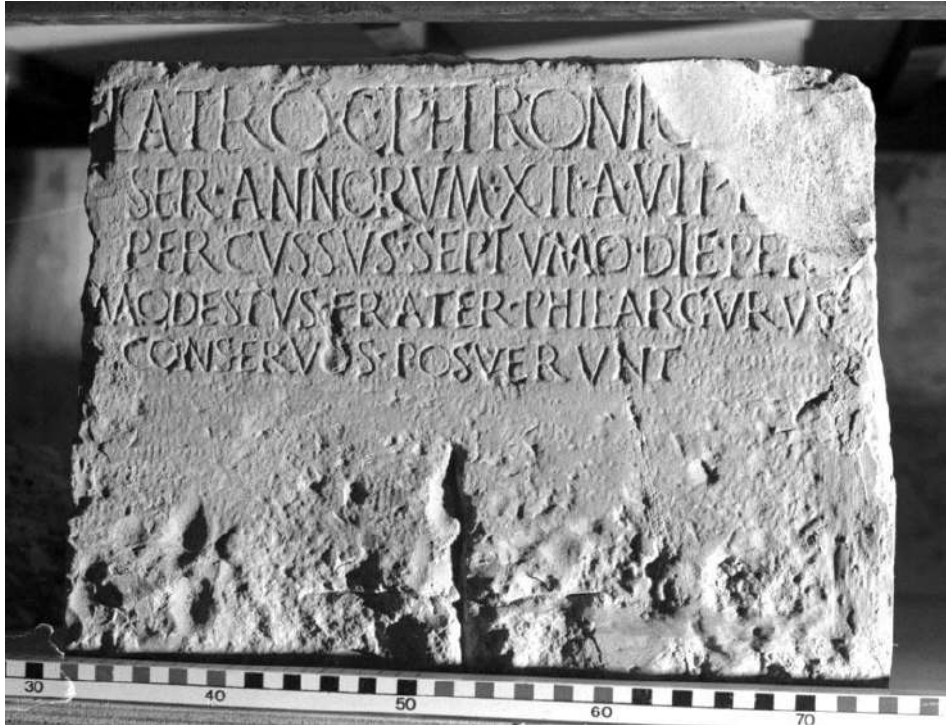 LATRO·C·PETRONI
SER·ANNORVM·XII·A·VIP
PERCVSSVS·SEPTVMO·DIE·PER
MODESTVS·FRATER·PHILARGVRVS
CONSERVOS·POSVERVNT
30 40 50 60 70